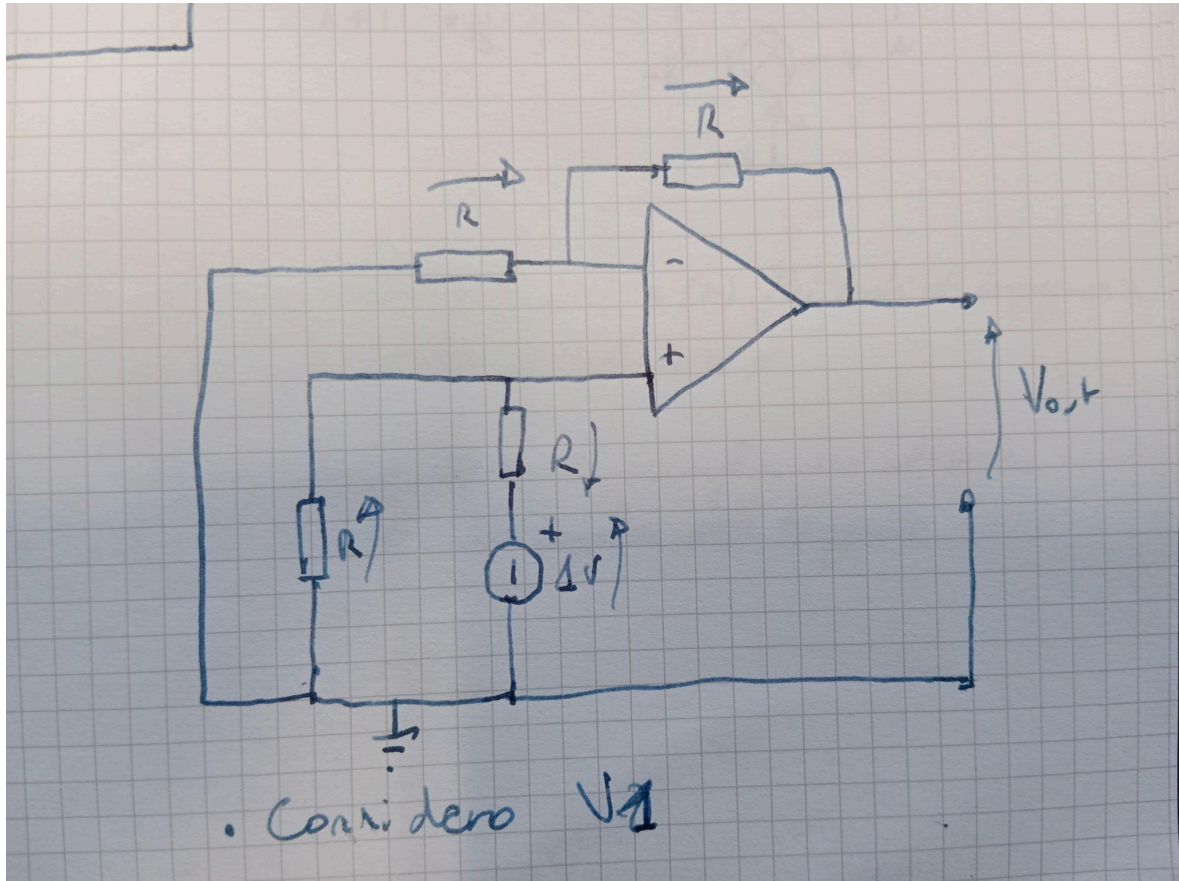 R
R
-
+
Vout
R
R
+
1V
. Considero V1